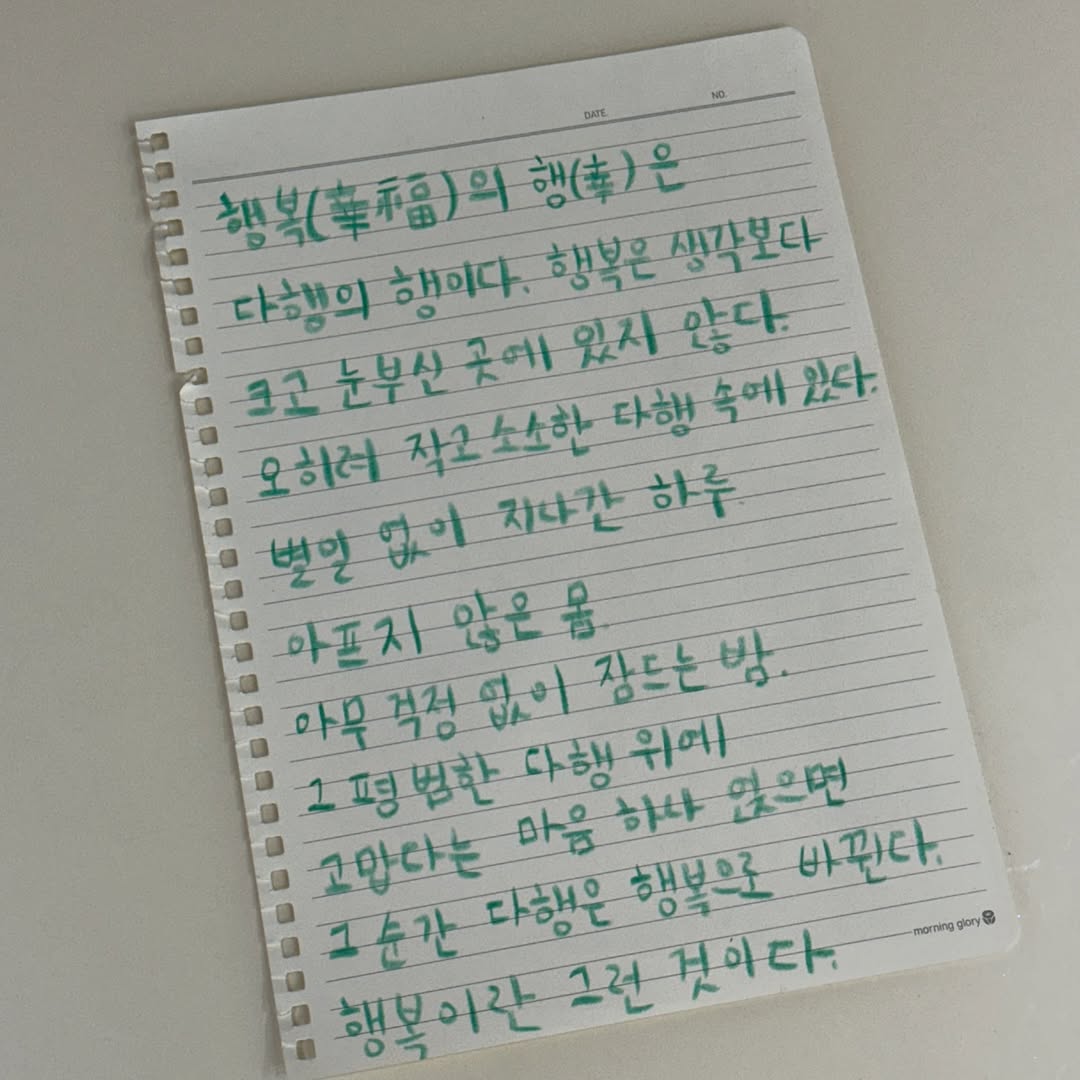 DATE.
NO.
행복(幸福)의 행(幸)은
다행의 행이다. 행복은 생각보다
크고 눈부신 곳에 있지 않다.
오히려 작고 소소한 다행 속에 있다.
별일 없이 지나간 하루.
아프지 않은 몸.
아무 걱정 없이 잠드는 밤.
그 평범한 다행 위에
고맙다는 마음 하나 얹으면
그 순간 다행은 행복으로 바뀐다.
행복이란 그런 것이다.
morning glory